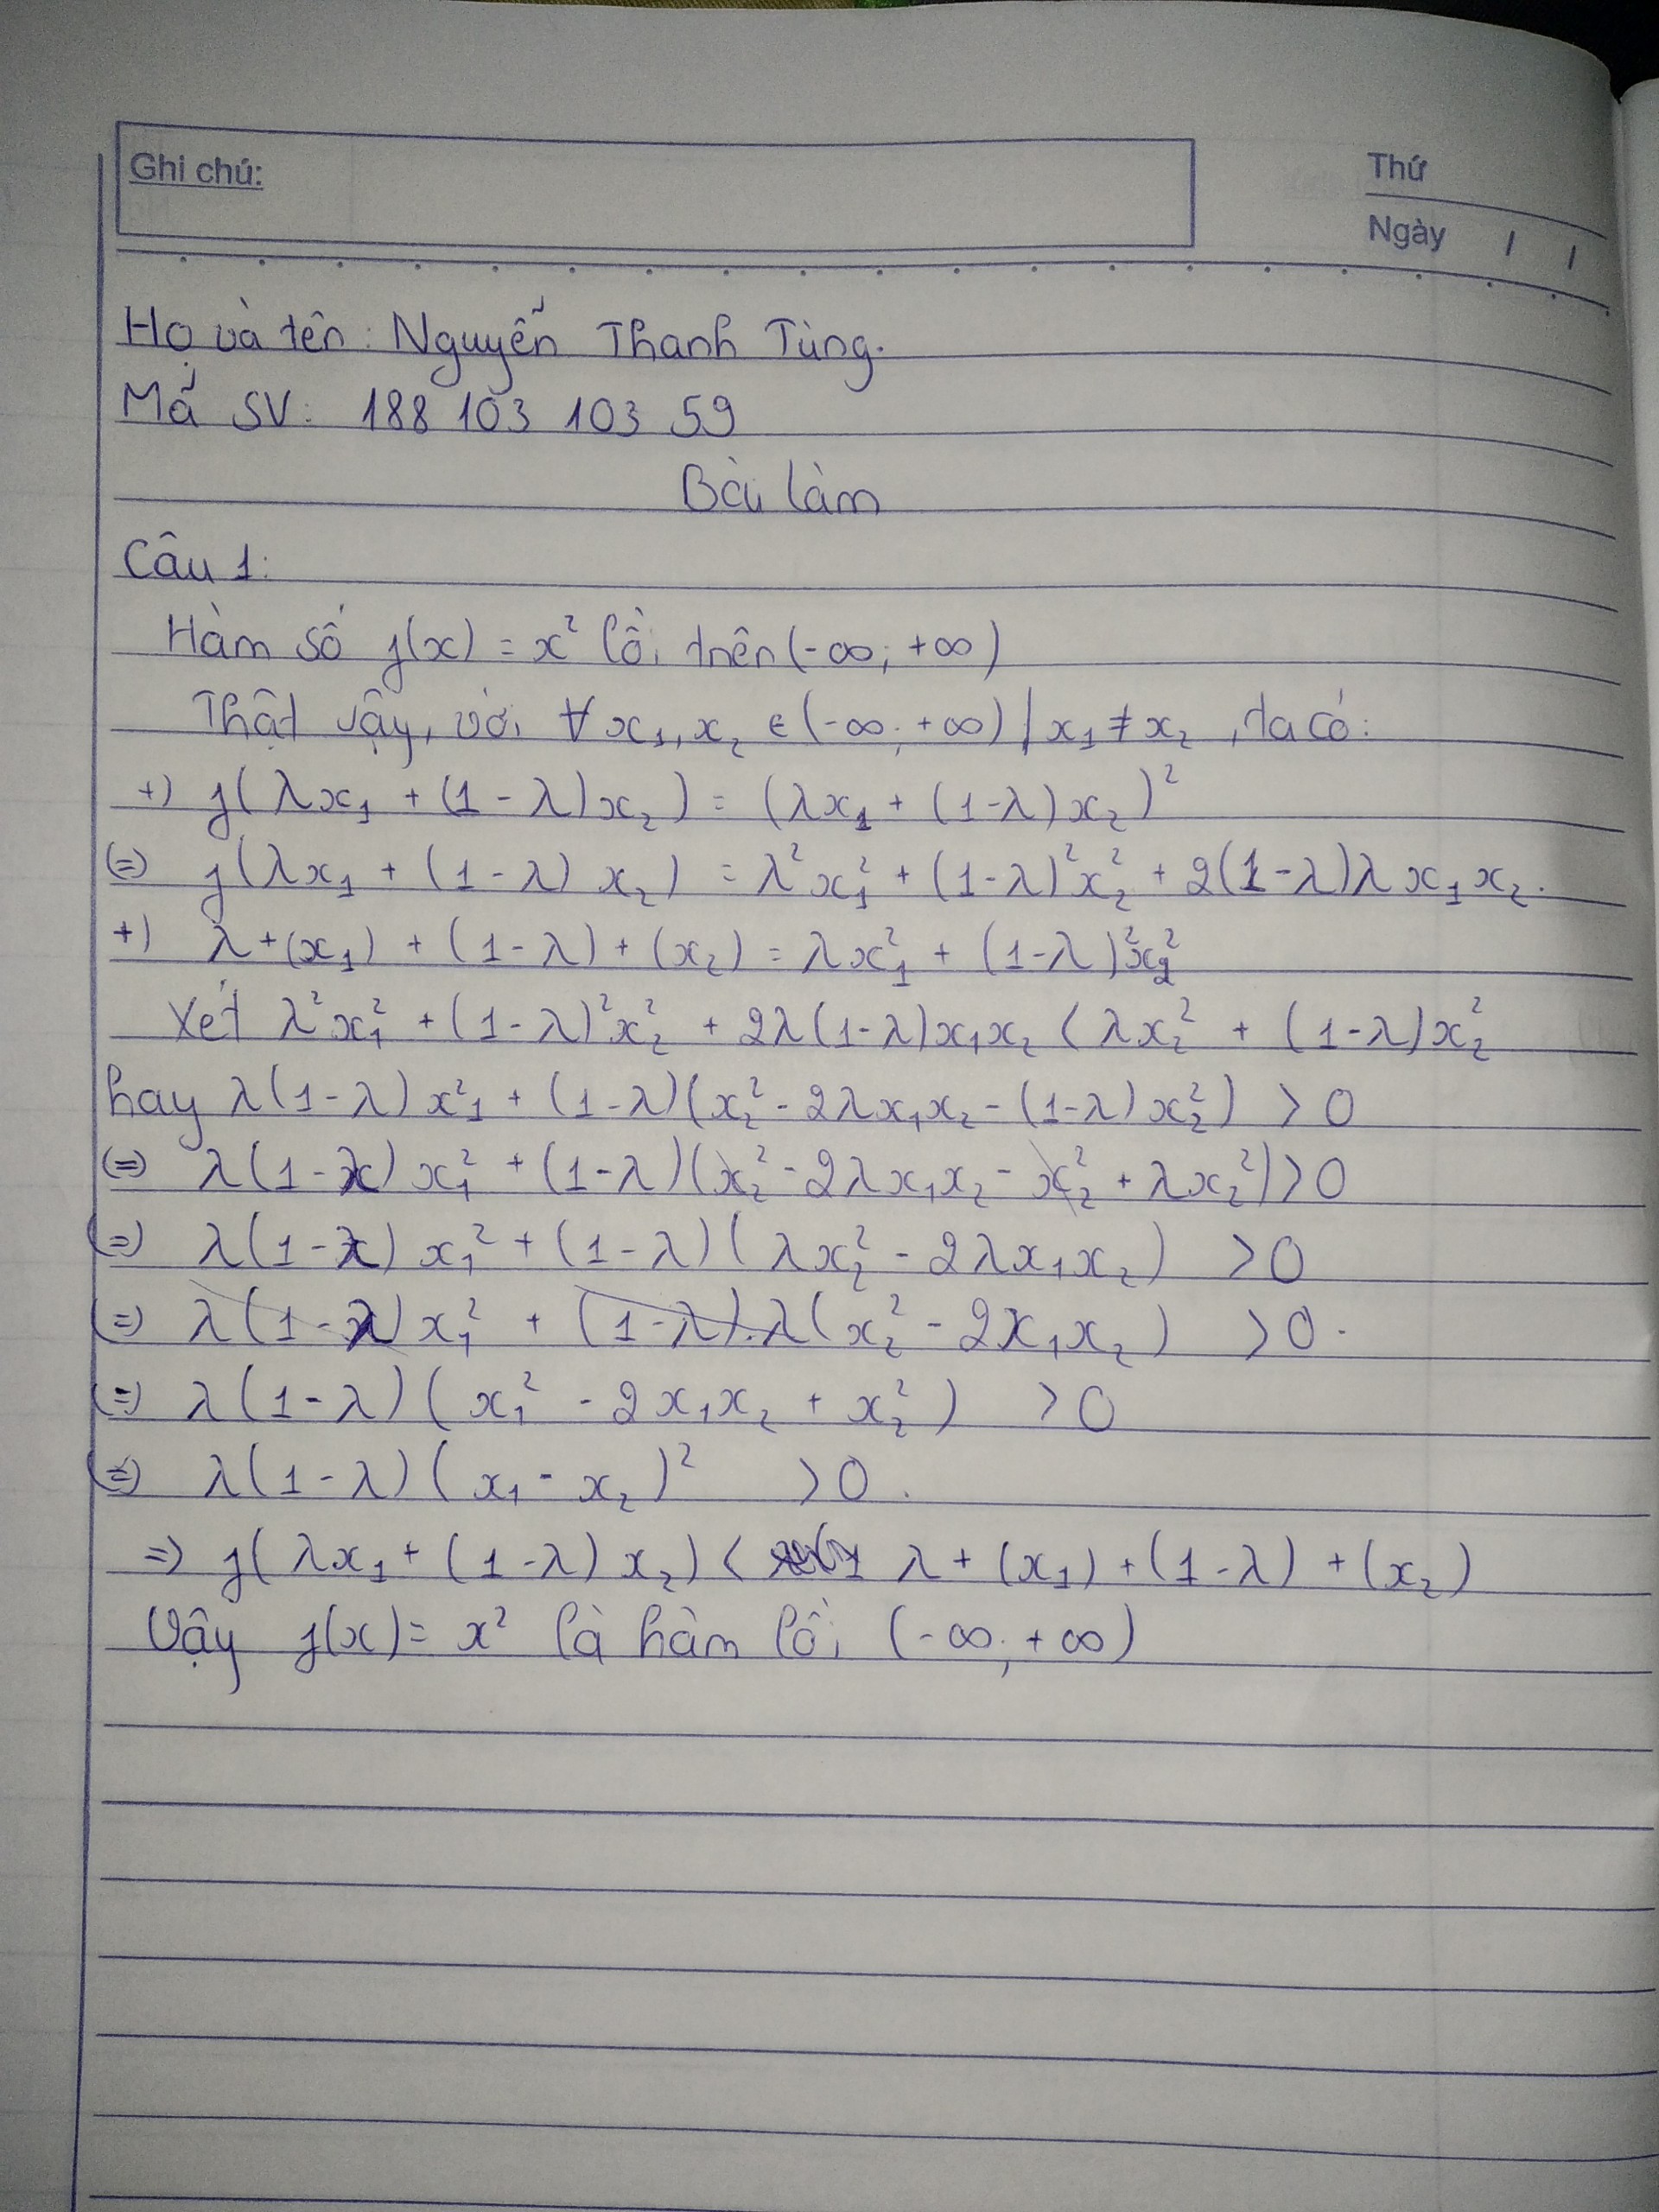 Ghi chú:
Thứ
Ngày / /
Họ và tên: Nguyễn Thanh Tùng.
Mã SV: 188 103 103 59
Bài làm
Câu 1:
Hàm số f(x) = x² lồi trên (-∞; +∞)
Thật vậy, với ∀ x₁, x₂ ∈ (-∞; +∞) | x₁ ≠ x₂, ta có:
+) f(λx₁ + (1 - λ)x₂) = (λx₁ + (1-λ)x₂)²
(=) f(λx₁ + (1 - λ) x₂) = λ²x₁² + (1-λ)²x₂² + 2(1-λ)λx₁x₂.
+) λ + (x₁) + (1 - λ) + (x₂) = λx₁² + (1-λ)²x₂²
Xét λ²x₁² + (1-λ)²x₂² + 2λ(1-λ)x₁x₂ < λx₂² + (1-λ)x₂²
hay λ(1-λ)x²₁ + (1-λ)(x₂² - 2λx₁x₂ - (1-λ)x₂²) > 0
(=) λ(1-λ)x₁² + (1-λ)(x₂² - 2λx₁x₂ - x₂² + λx₂²) > 0
(=) λ(1-λ)x₁² + (1-λ)(λx₂² - 2λx₁x₂) > 0
(=) λ(1-λ)x₁² + (1-λ).λ(x₂² - 2x₁x₂) > 0.
(=) λ(1-λ)(x₁² - 2x₁x₂ + x₂²) > 0
(=) λ(1-λ)(x₁ - x₂)² > 0.
=> f(λx₁ + (1-λ)x₂) < λ + (x₁) + (1-λ) + (x₂)
Vậy f(x) = x² là hàm lồi (-∞; +∞)